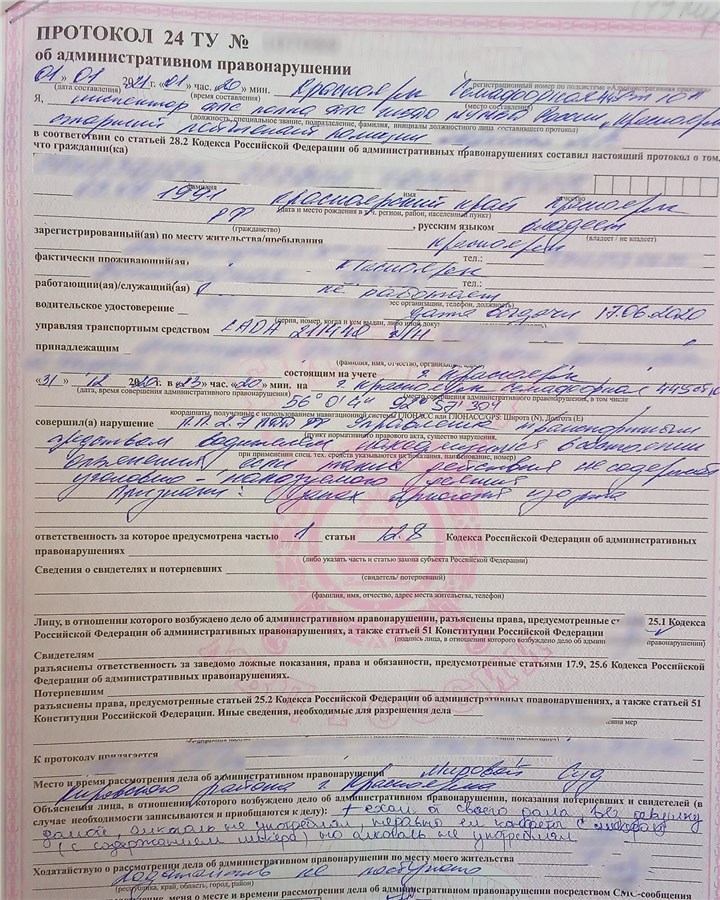 ПРОТОКОЛ 24 ТУ №
об административном правонарушении
регистрационный номер по подсистеме «Административная практика»
«01» 01 2021 г. «01» час. 20 мин. г. Красноярск Семафорная
(дата составления) (время составления) (место составления)
Я, инспектор ДПС полка ДПС
(должность, специальное звание, подразделение, фамилия, инициалы должностного лица, составившего протокол)
старший лейтенант полиции
в соответствии со статьей 28.2 Кодекса Российской Федерации об административных правонарушениях составил настоящий протокол о том,
что гражданин(ка)
фамилия имя отчество
1991 Красноярский край Красноярск
(дата и место рождения в т.ч. регион, район, населенный пункт)
РФ , русским языком владеет
(гражданство) (владеет / не владеет)
зарегистрированный(ая) по месту жительства/пребывания Красноярск
тел.:
фактически проживающий(ая) г. Красноярск
тел.:
работающий(ая)/служащий(ая) не работает
водительское удостоверение дата выдачи 17.06.2020
(серия, номер, когда и кем выдан, либо иной
управляя транспортным средством LADA 211440
принадлежащим
(фамилия, имя, отчество,
состоящим на учете г. Красноярск
«31» 12 2020 г. в «23» час. «20» мин. на г. Красноярск Семафорная
(дата, время совершения административного правонарушения) (место совершения административного правонарушения, в том числе
56° 0'
координаты, полученные с использованием навигационной системы ГЛОНАСС или ГЛОНАСС/GPS: Широта (N), Долгота (E)
совершил(а) нарушение П.П. 2.7 ПДД РФ Управление транспортным
(пункт нормативного правового акта, существо нарушения,
средством водителем находящимся в состоянии
при применении спец. тех. средств указываются их показания, наименование, номер)
опьянения, если такие действия не содержат
уголовно-наказуемого деяния
Признаки: запах алкоголя изо рта
ответственность за которое предусмотрена частью 1 статьи 12.8 Кодекса Российской Федерации об административных
правонарушениях
(либо указать часть и статью закона субъекта Российской Федерации)
Сведения о свидетелях и потерпевших
(свидетель/ потерпевший)
(фамилия, имя, отчество, адрес места жительства, телефон)
Лицу, в отношении которого возбуждено дело об административном правонарушении, разъяснены права, предусмотренные ст 25.1 Кодекса
Российской Федерации об административных правонарушениях, а также статьей 51 Конституции Российской Федерации
(подпись лица, в отношении которого возбуждено дело об правонарушении)
Свидетелям
разъяснены ответственность за заведомо ложные показания, права и обязанности, предусмотренные статьями 17.9, 25.6 Кодекса Российской
Федерации об административных правонарушениях.
Потерпевшим
разъяснены права, предусмотренные статьей 25.2 Кодекса Российской Федерации об административных правонарушениях, а также статьей 51
Конституции Российской Федерации. Иные сведения, необходимые для разрешения дела
К протоколу прилагается
Место и время рассмотрения дела об административном правонарушении Мировой Суд
Кировского района г. Красноярска
Объяснения лица, в отношении которого возбуждено дело об административном правонарушении, показания потерпевших и свидетелей (в
случае необходимости записываются и приобщаются к делу): я ехал от своего дома вёз девушку
домой, алкоголь не употреблял первый ел конфеты с ликером
(с содержанием ликера) но алкоголь не употреблял
Ходатайствую о рассмотрении дела об административном правонарушении по месту моего жительства
ходатайств не поступало
(республика, край, область, город, район)
меня о месте и времени рассмотрения дела об административном правонарушении посредством СМС-сообщения